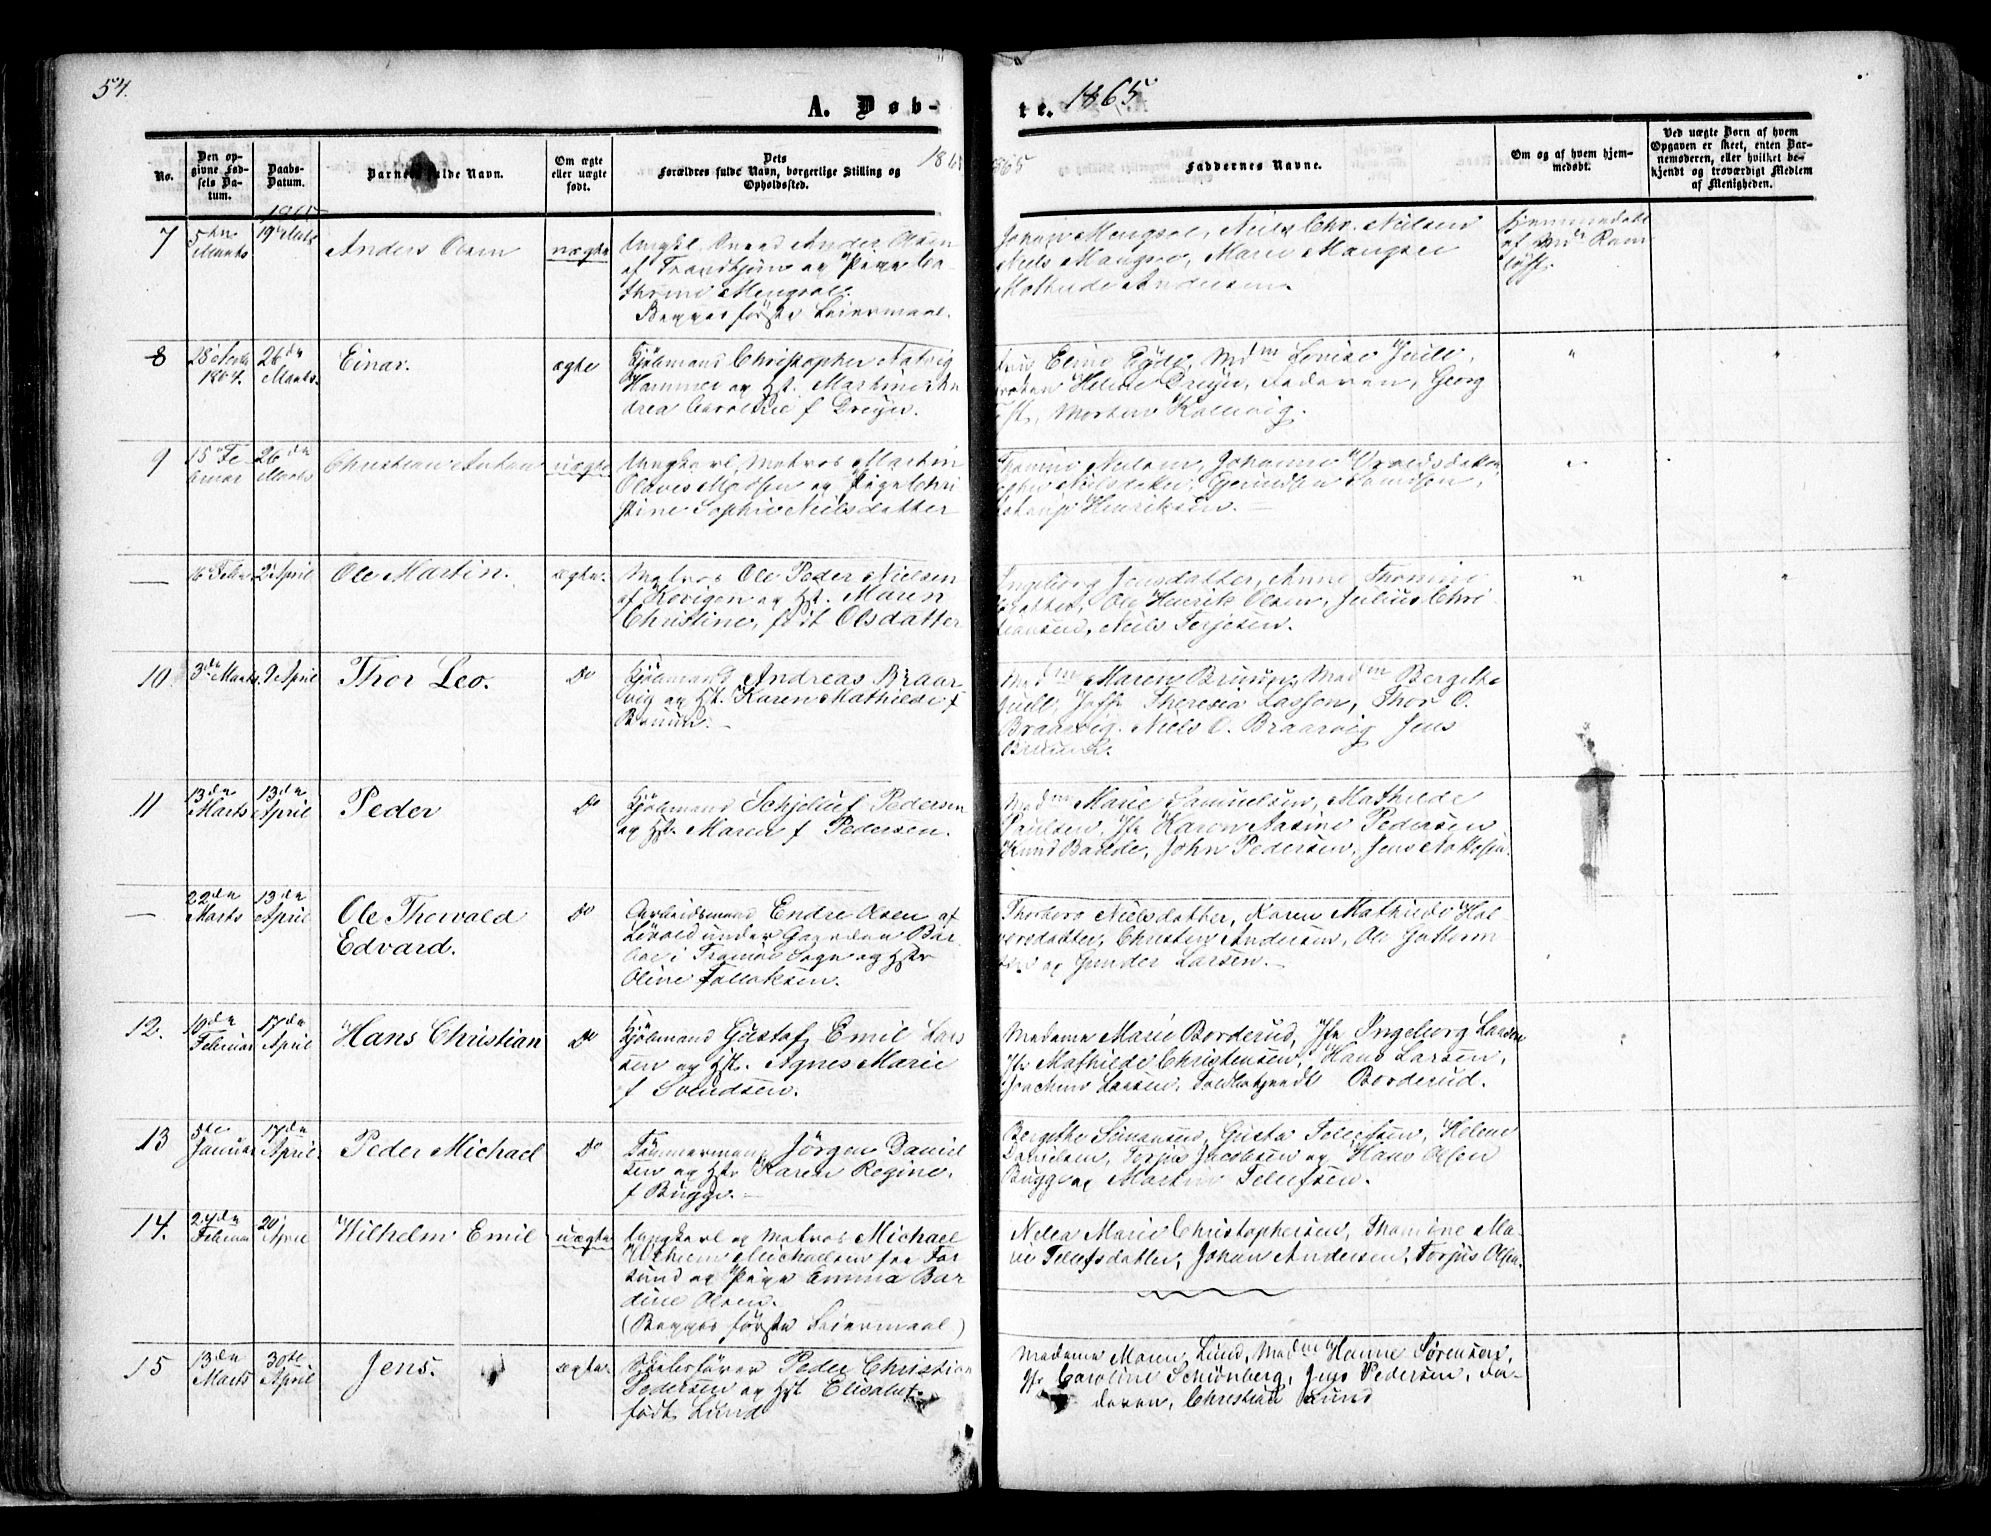 54.
A. Døb-
te. 1865
No.
Den opgivne Fødsels Datum.
Daabs-Datum.
Barnets fulde Navn.
Om ægte eller uægte født.
Dets Forældres fulde Navn, borgerlige Stilling og Opholdsted.
Faddernes Navne.
Om og af hvem hjemmedøbt.
Ved uægte Børn af hvem Opgaven er skeet, enten Barnemoderen, eller hvilket bekjendt og troværdigt Medlem af Menigheden.
1865
7 5te Marts 19de Marts Anders Olsen uægte
Ungkl. Anders Olsen
af Trondhjem og Pige Ca-
thrine Mengsol.
Begges første Leiermaal.
Niels Chr. Nielsen
Marie
Mathilde Andersen.
Hjemmedøbt
af Md.
8 28de 1864. 26de Marts. Einar. ægte
Kjøbmand Christopher Natvig
Hammer og Hst. Martine An-
drea Caroline f Dreyer.
Eline Eyde, Mdm Lovise Juell,
Helene Dreyer, Faderen, Georg
Morten Kallevig.
9 15de Februar 26de Marts Christian Anton uægte
Ungkarl, Matros Martin
Olaves Madsen og Pige Chri-
stine Sophie Nielsdatter
Thomine Nielsen, Johanne
Nielsdatter,
Henriksen.
— 16de Febr 2den April Ole Martin. ægte.
Matros Ole Peder Nielsen
af Revigen og Hst. Maren
Christine, født Olsdatter
Ingeborg Jensdatter, Anne Thomine
datter, Ole Henrik Olsen, Julius Chri-
stiansen, Niels Terjesen.
10 3de Marts. 9 April Thor Leo. Do
Kjøbmand Andreas Braar-
vig og Hst. Karen Mathilde f
Bruun.
Madm Maren Bruun, Madm Bergitte
Juell, Jfr Theresia Lassen, Thor O.
Braarvig. Niels O. Braarvig Jens
Bruun.
11 13de Marts 13de April Peder Do
Kjøbmand Schjeluf Pedersen
og Hst. Maren f Pedersen.
Madm Marie Samuelsen, Mathilde
Paulsen, Jfr Karen Aasine Pedersen
Knud John Pedersen, Jens
— 22de Marts 13de April Ole Thorvald Do
Edvard.
Arbeidsmand Endre Olsen af
Løvold under Gaarden Bar-
boe i Tromøe Sogn og Hstr
Oline Tallaksen.
Thorborg Nielsdatter, Karen Mathilde Hal-
vorsdatter, Christen Andersen, Ole Guttorm-
sen og Gunder Larsen.
12. 10de Februar 17de April Hans Christian Do
Kjøbmand Gustaf Emil Lar-
sen og Hst. Agnes Marie
f Svendsen.
Madame Marie Borderud, Jfr Ingeborg Larsen
Jfr Mathilde Christensen, Hans Larsen,
Joachim Larsen, Borderud.
13 5te Januar 17de April Peder Michael Do
Tømmermand Jørgen Daniel-
sen og Hstr Karen Regine,
f Bugge.
Bergithe Simonsen, Gusta Tellefsen, Helene
Danielsen, Terje Jacobsen og Hans Olsen
Bugge og Martin Tellefsen.
14. 24de Februar 20de April Wilhelm Emil uægte
Ungkarl og Matros Michael
Wilhelm Michaelsen fra Far-
sund og Pige Emma Bar-
dine Olsen.
(Begges første Leiermaal)
Nella Marie Christophersen, Thomine Ma-
rie Tellefsdatter, Johan Andersen, Torjus Olsen.
15 13de Marts 30te April Jens. ægte.
Skibsfører Peder Christian
Pedersen og Hst Elisabet
født Lund
Madame Maren Lund, Madm Hanne Sørensen,
Jfr Caroline Schønberg, Jens Pedersen, Fa-
deren, Christian Lund